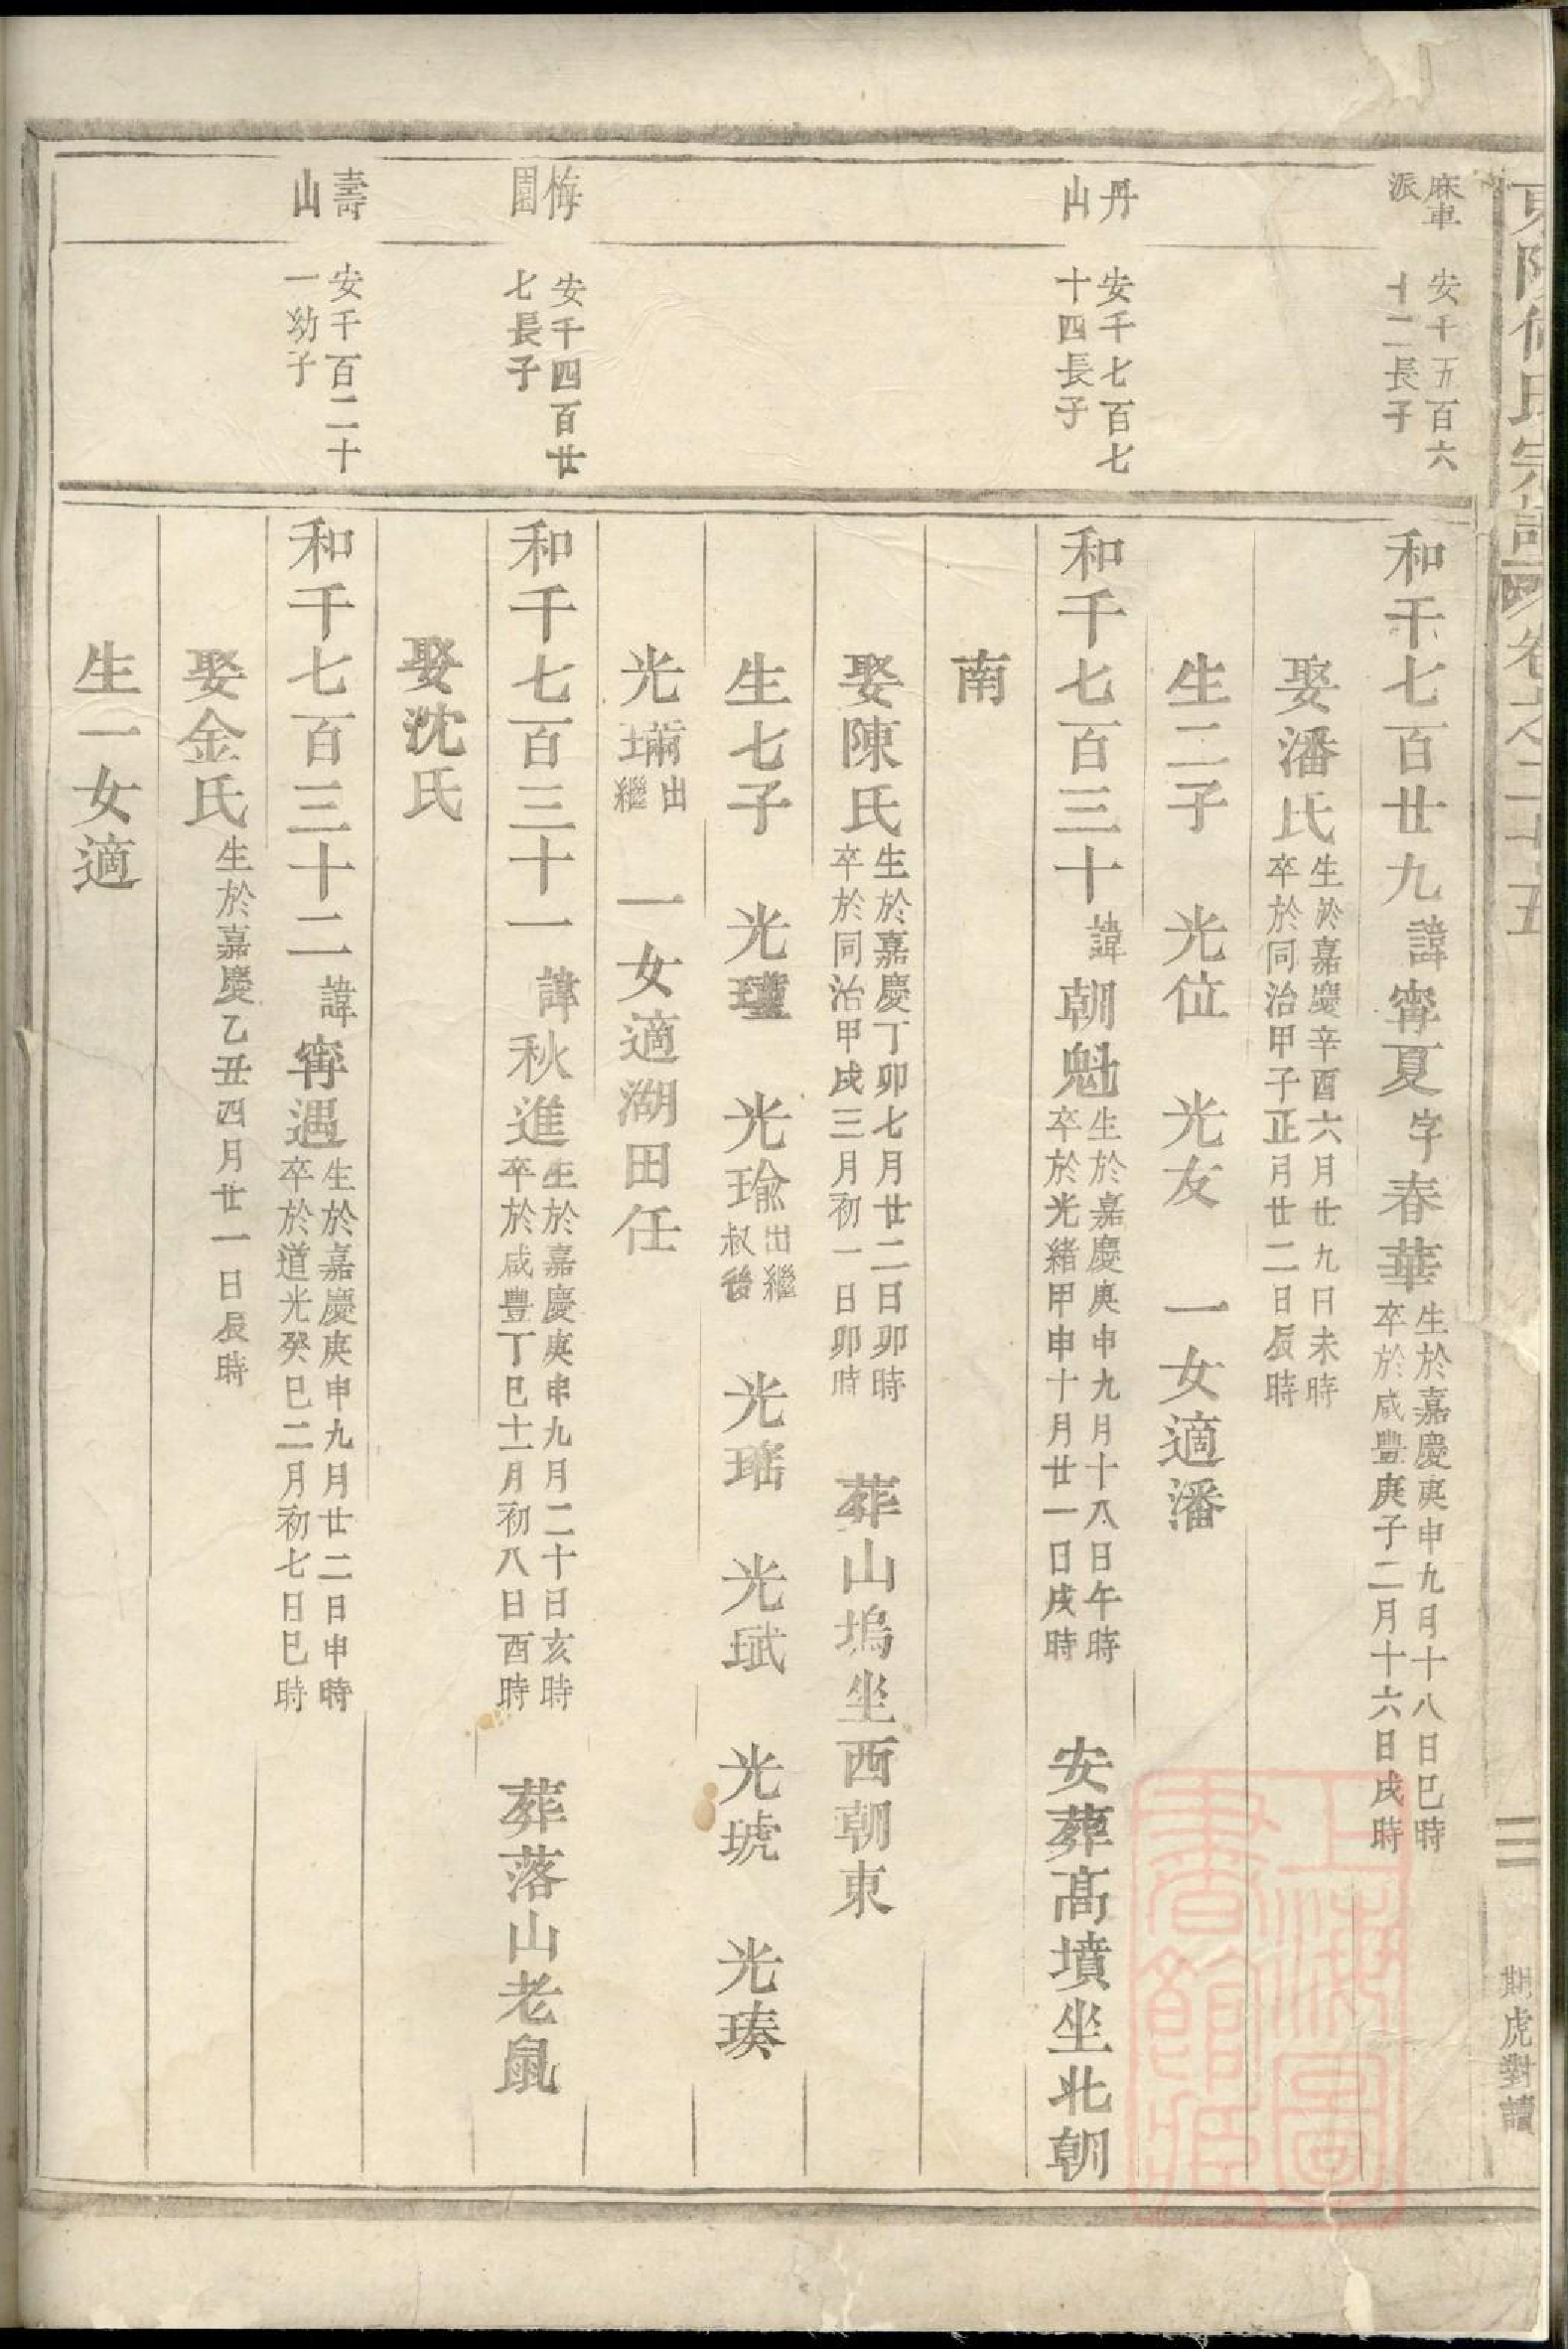 東陽何氏宗譜 卷之二十五 三 期虎對讀
麻車派 安千五百六十二長子
和千七百廿九 諱甯夏 字春華 生於嘉慶庚申九月十八日巳時 卒於咸豐庚子二月十六日戌時
娶潘氏 生於嘉慶辛酉六月廿九日未時 卒於同治甲子正月廿二日辰時
生二子 光位 光友 一女適潘
丹山 安千七百七十四長子
和千七百三十 諱朝魁 生於嘉慶庚申九月十八日午時 卒於光緒甲申十月廿一日戌時 安葬高墳坐北朝
南
娶陳氏 生於嘉慶丁卯七月廿二日卯時 卒於同治甲戌三月初一日卯時 葬山塢坐西朝東
生七子 光瓊 光瑜 出繼叔後 光瑤 光珷 光琥 光瑧
光㻴 出繼 一女適湖田任
梅園 安千四百廿七長子
和千七百三十一 諱秋進 生於嘉慶庚申九月二十日亥時 卒於咸豐丁巳十一月初八日酉時 葬落山老鼠
娶沈氏
壽山 安千百二十一幼子
和千七百三十二 諱甯遇 生於嘉慶庚申九月廿二日申時 卒於道光癸巳二月初七日巳時
娶金氏 生於嘉慶乙丑四月廿一日辰時
生一女適
上海圖書館藏